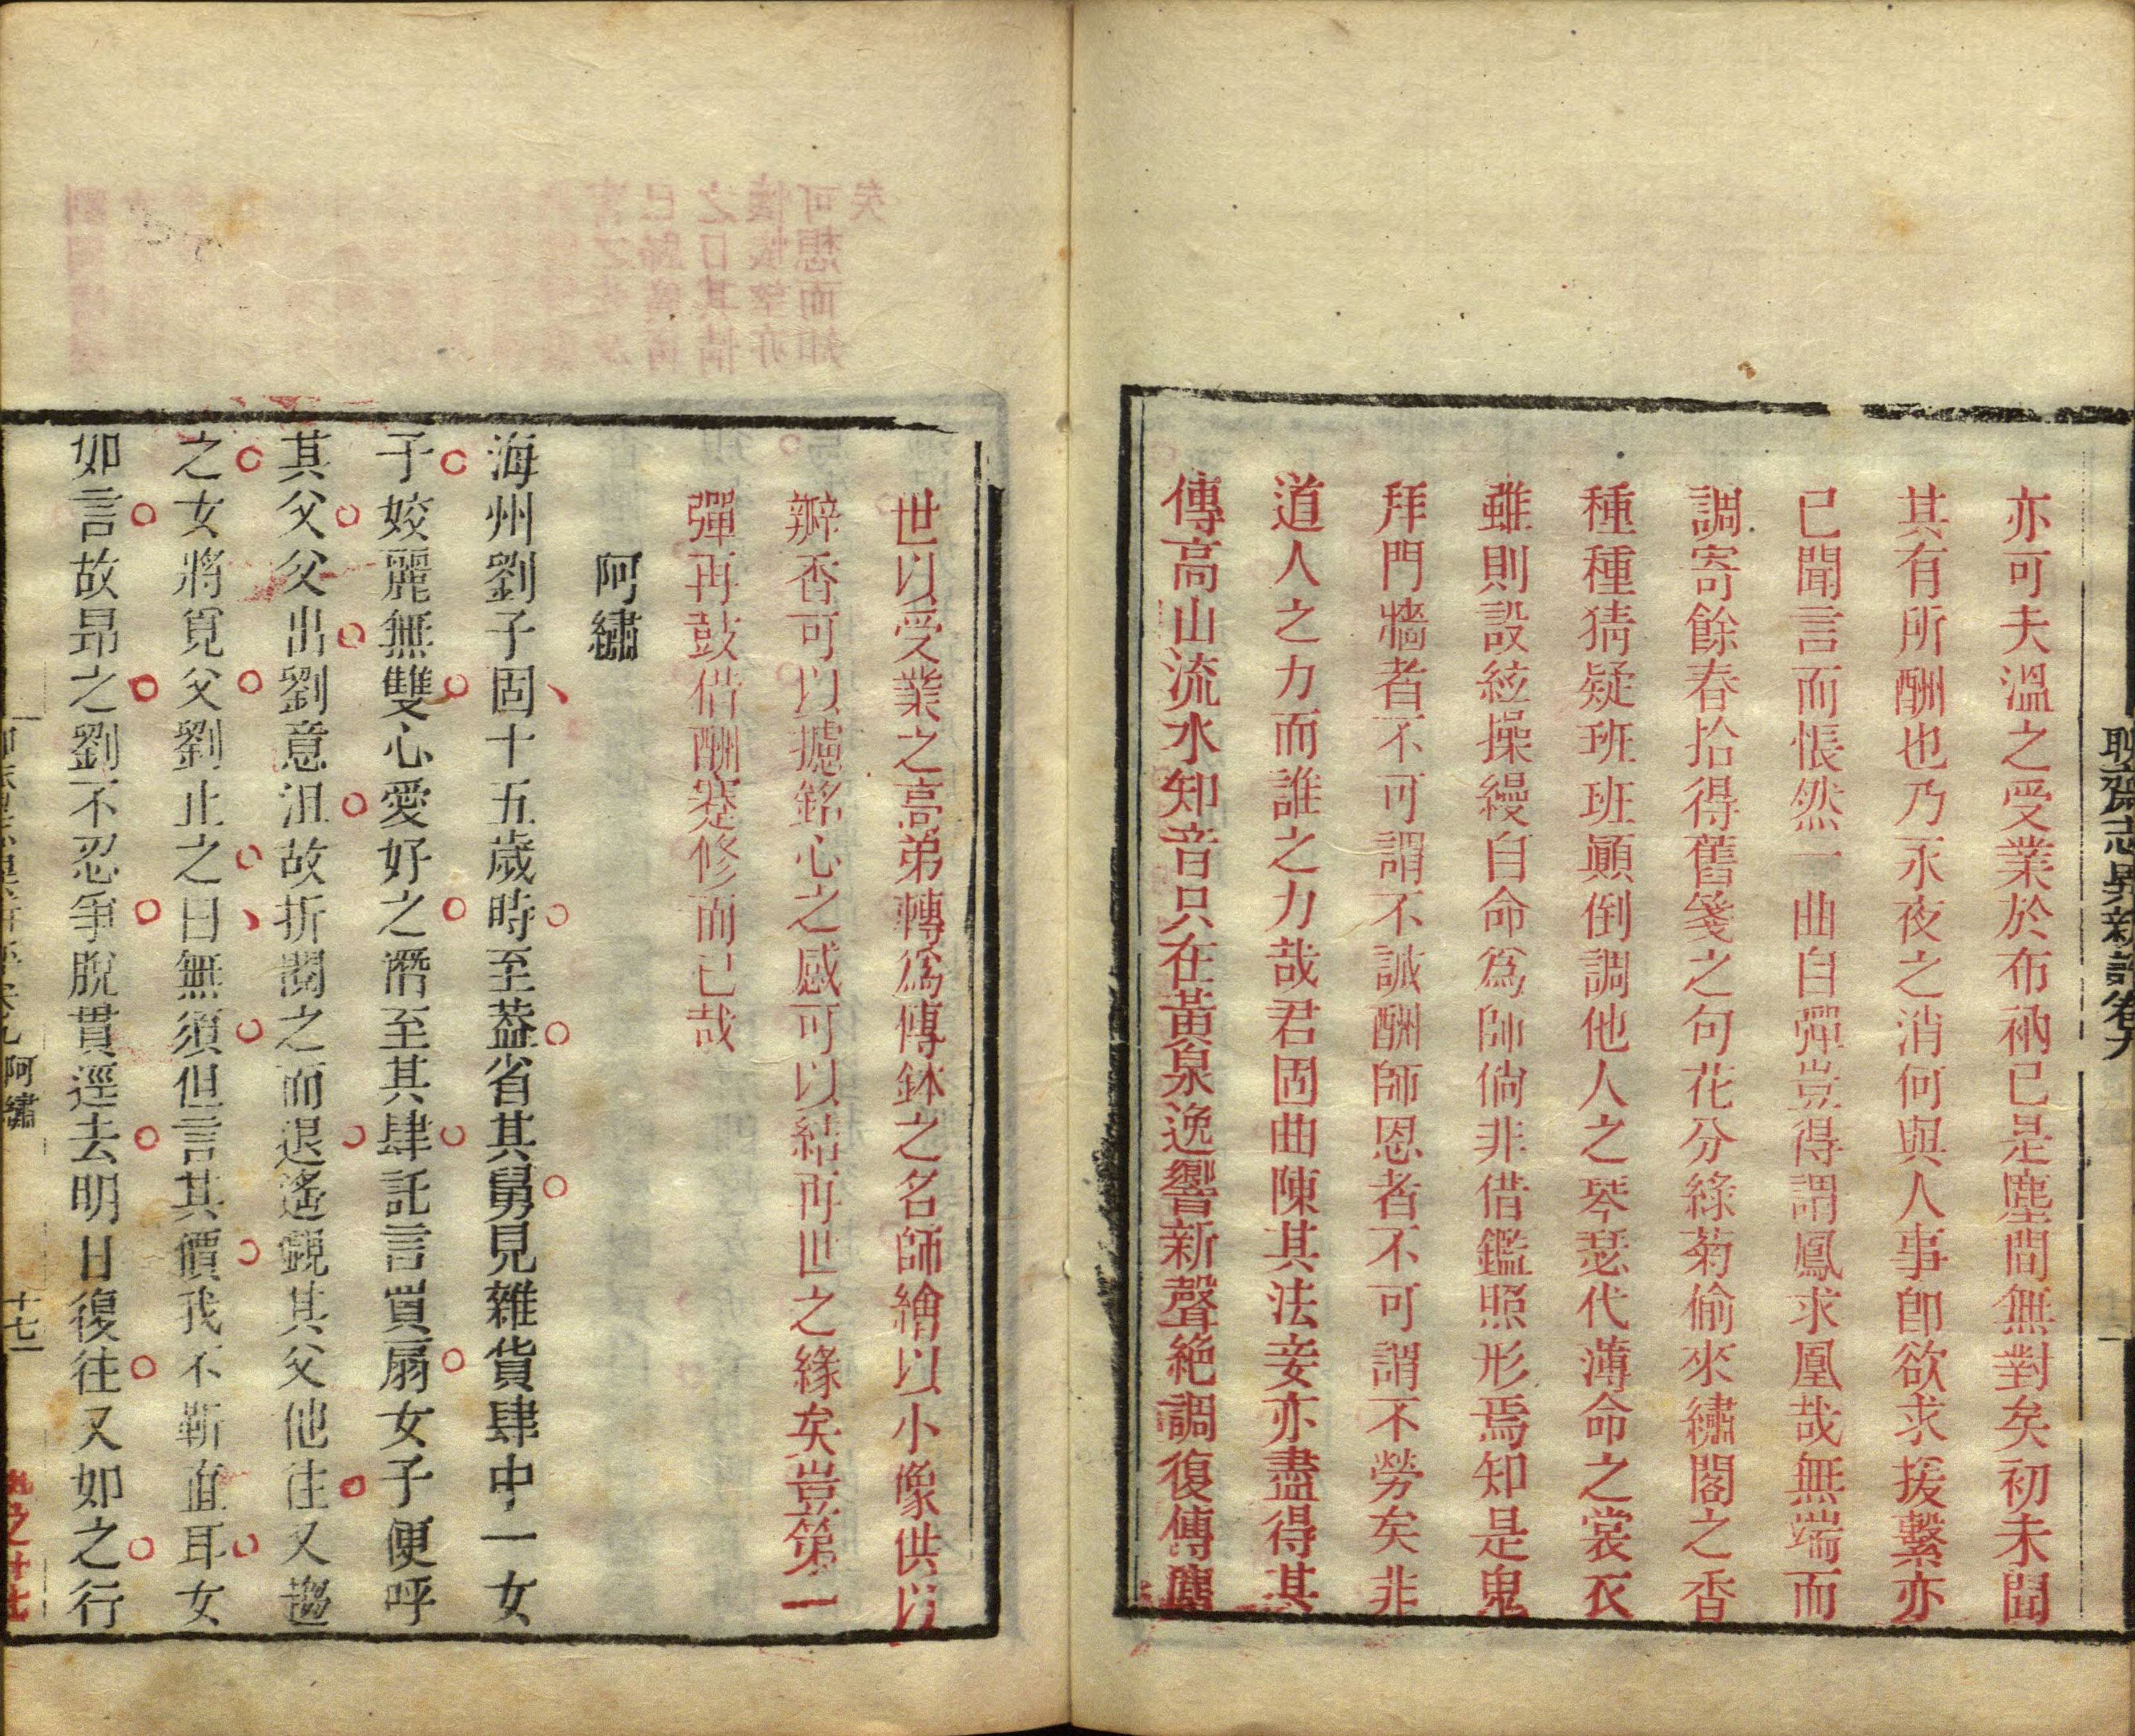 聊齋志異新評卷九
亦可夫溫之受業於布衲已是塵間無對矣初未聞
其有所酬也乃永夜之消何與人事卽欲求援繫亦
已聞言而悵然一曲自彈豈得謂鳳求凰哉無端而
調寄餘春拾得舊箋之句花分綠菊偷來繡閣之香
種種猜疑班班顚倒調他人之琴瑟代薄命之裳衣
雖則設絃操縵自命爲師倘非借鑑照形焉知是鬼
拜門牆者不可謂不誠酬師恩者不可謂不勞矣非
道人之力而誰之力哉君固曲陳其法妾亦盡得其
傳高山流水知音只在黃泉逸響新聲絶調復傳塵
世以受業之高弟轉爲傳鉢之名師繪以小像供以
瓣香可以攄銘心之感可以結再世之緣矣豈第一
彈再鼓借酬蹇修而已哉
阿繡
海州劉子固十五歲時至葢省其舅見雜貨肆中一女
子姣麗無雙心愛好之潛至其肆託言買扇女子便呼
其父父出劉意沮故折閱之而退遙覷其父他往又趨
之女將覓父劉止之曰無須但言其價我不靳直耳女
如言故昻之劉不忍爭脫貫逕去明日復往又如之行
阿繡
十七